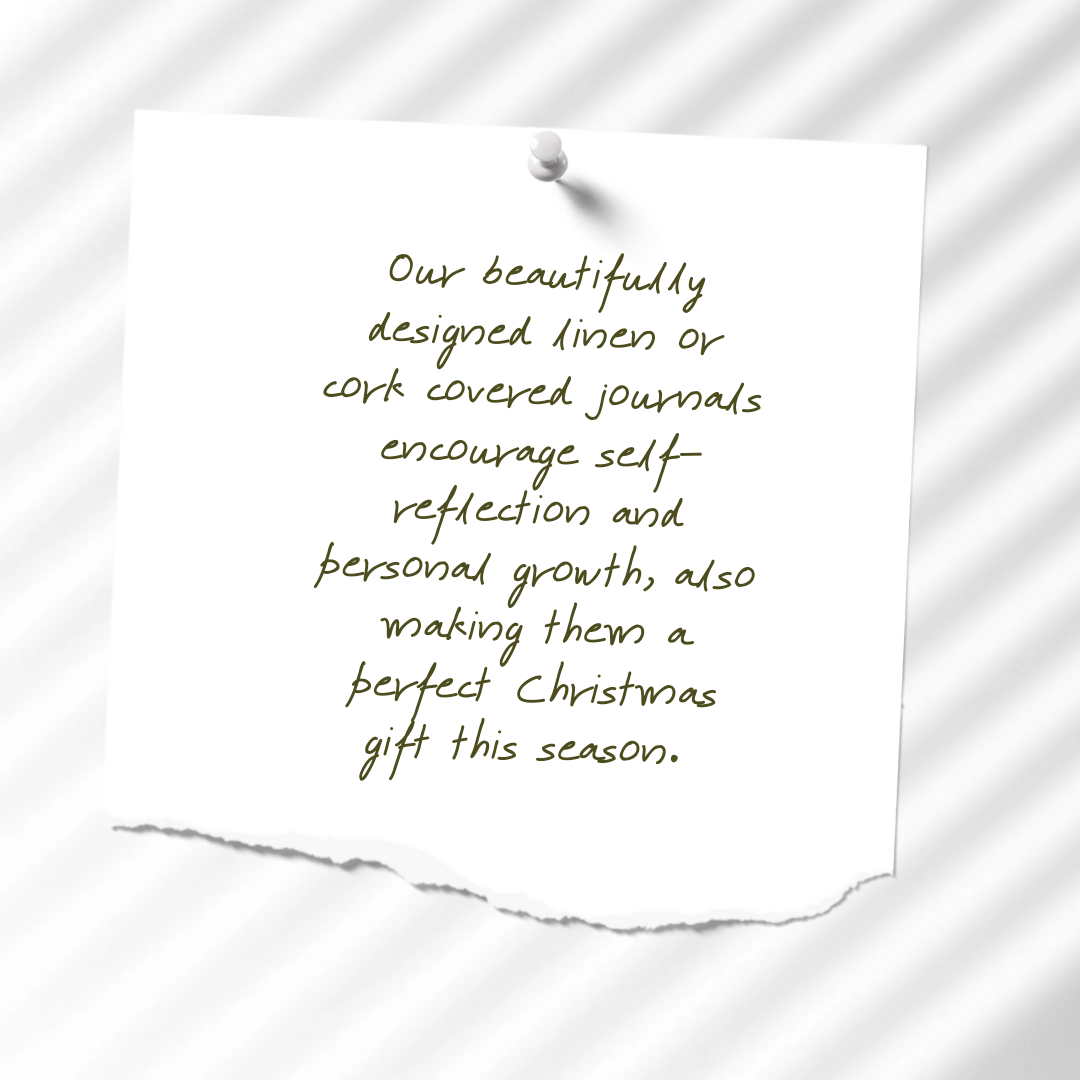 Our beautifully
designed linen or
cork covered journals
encourage self-
reflection and
personal growth, also
making them a
perfect Christmas
gift this season.